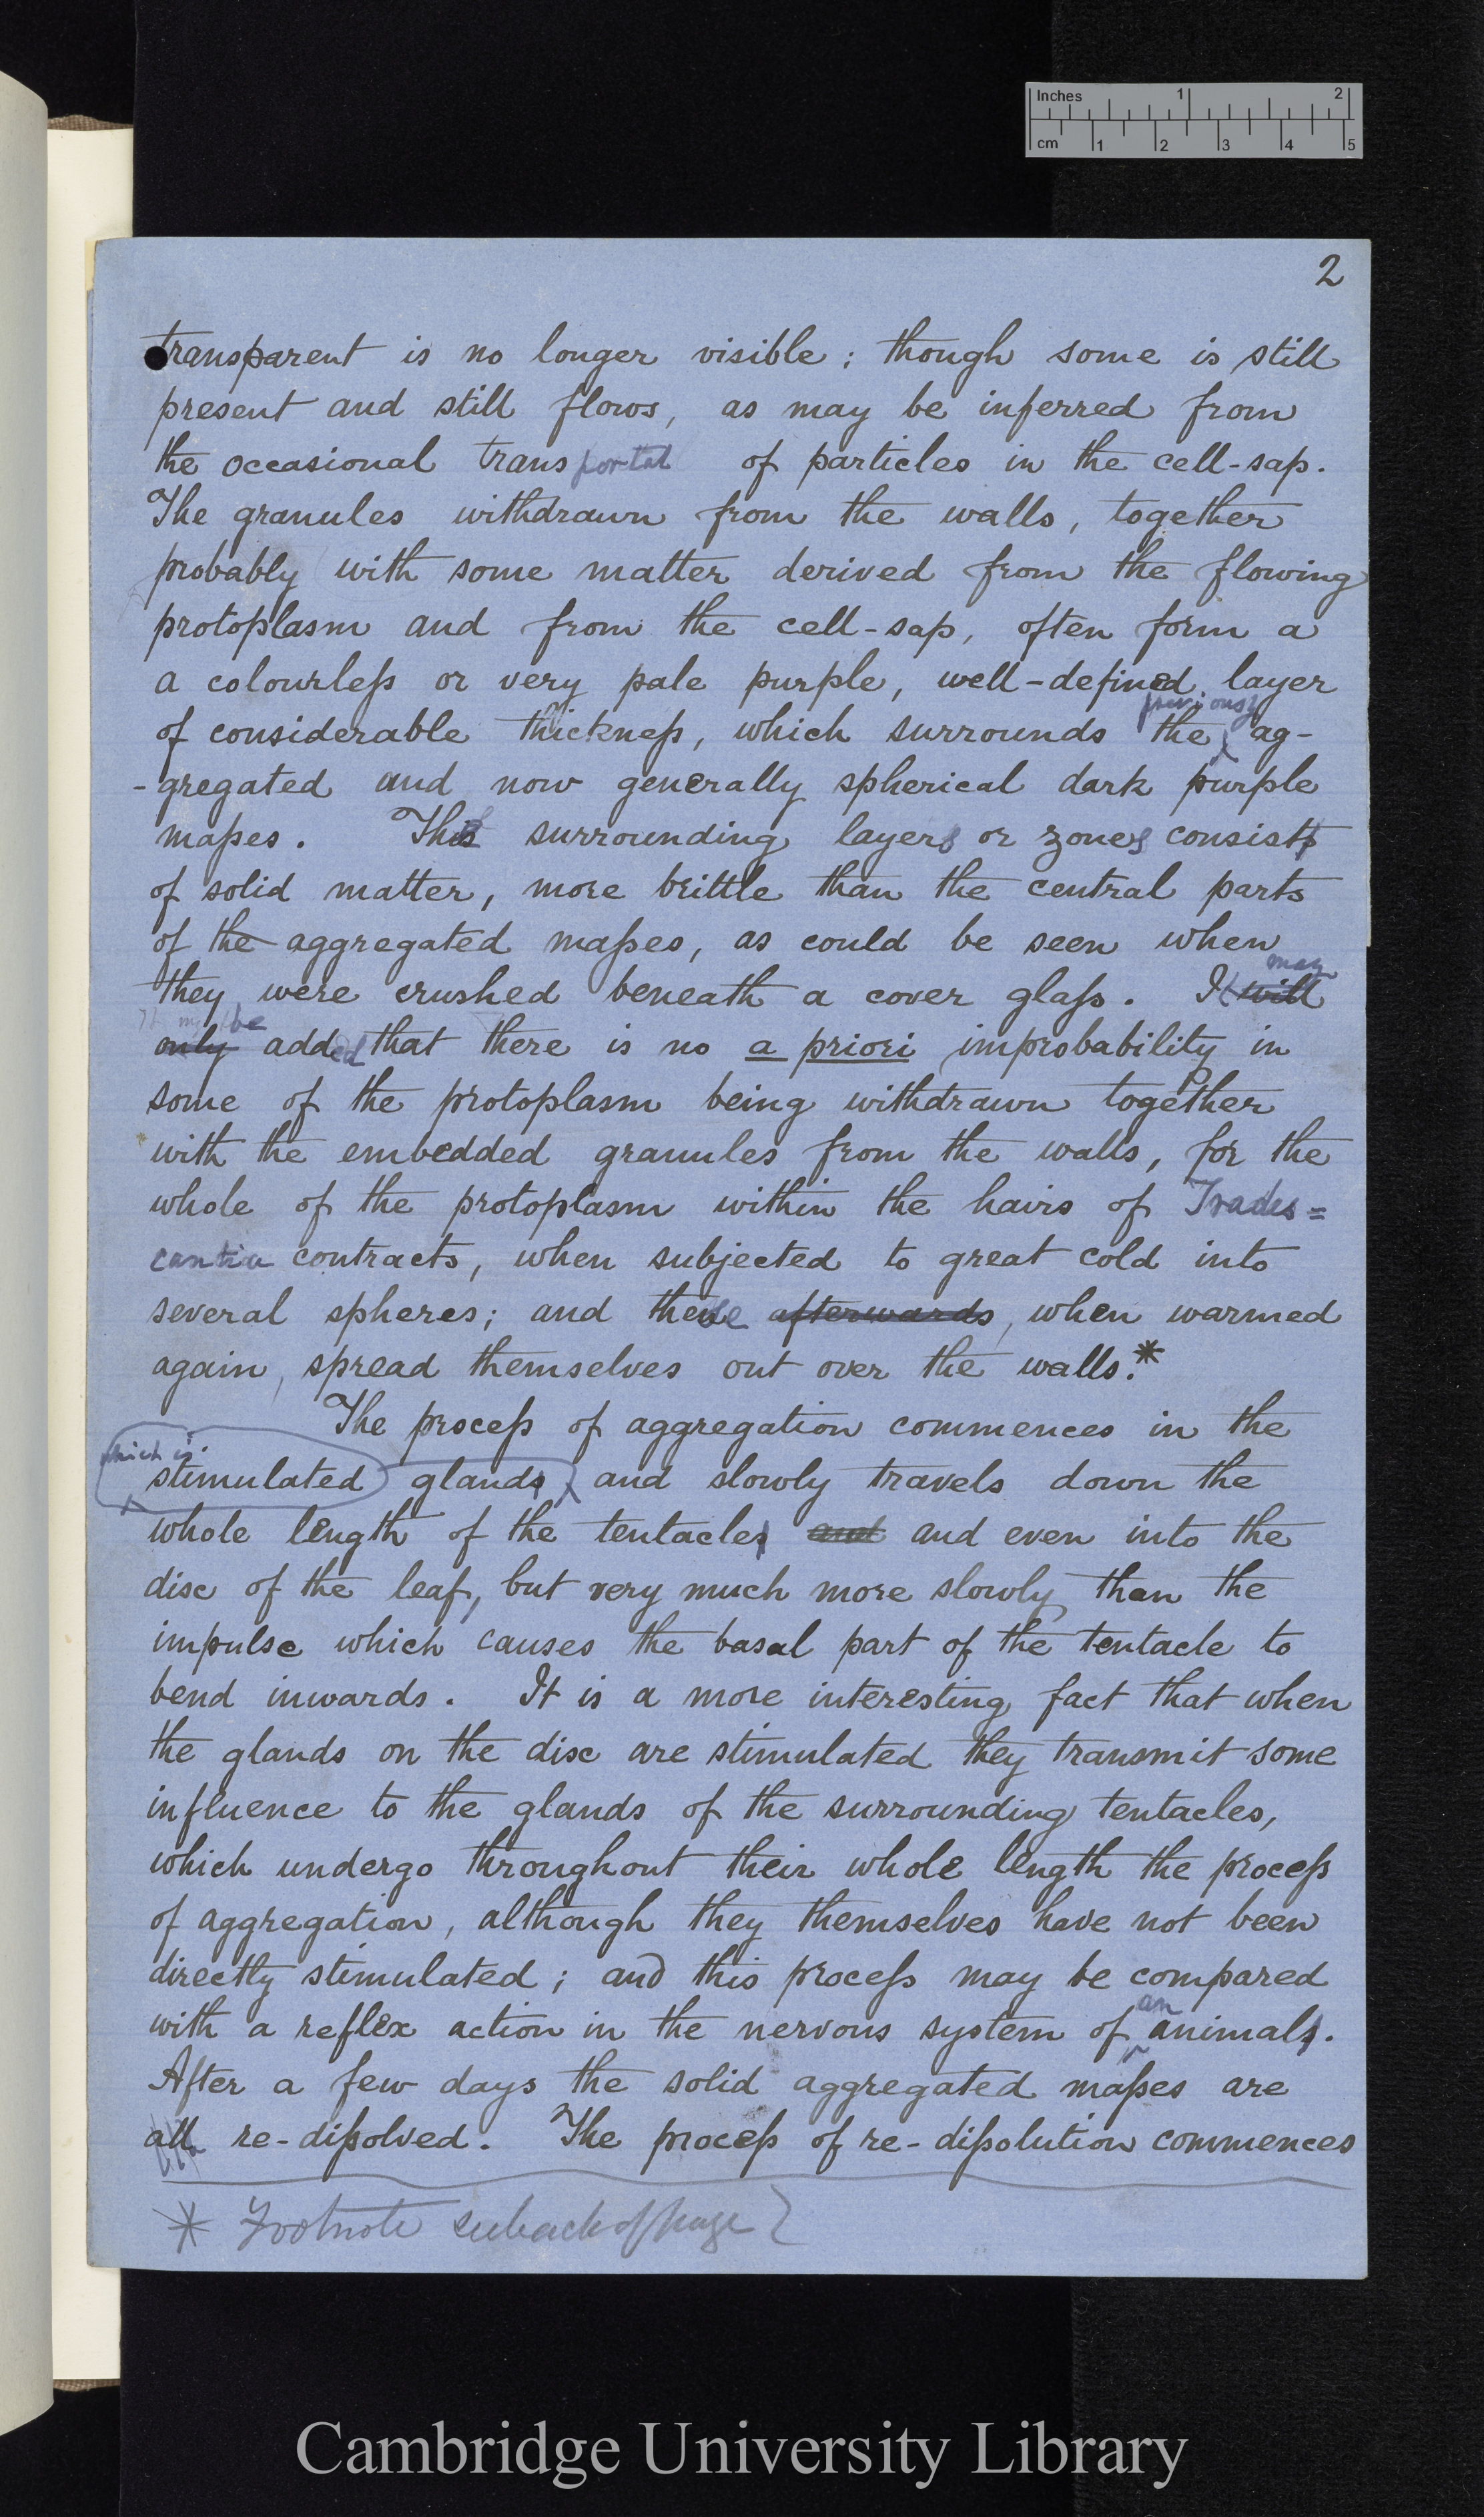 Inches 1 2
cm 1 2 3 4 5
2
transparent is no longer visible; though some is still
present and still flows, as may be inferred from
the occasional transportal of particles in the cell-sap.
The granules withdrawn from the walls, together
probably with some matter derived from the flowing
protoplasm and from the cell-sap, often form a
a colourless or very pale purple, well-defined layer
previously
of considerable thickness, which surrounds the ag-
-gregated and now generally spherical dark purple
masses. This surrounding layers or zones consists
of solid matter, more brittle than the central parts
of the aggregated masses, as could be seen when
may
they were crushed beneath a cover glass. It will
be
only added that there is no a priori improbability in
some of the protoplasm being withdrawn together
with the embedded granules from the walls, for the
whole of the protoplasm within the hairs of Trades=
cantia contracts, when subjected to great cold into
several spheres; and these afterwards, when warmed
again, spread themselves out over the walls.*
The process of aggregation commences in the
which is
stimulated glands, and slowly travels down the
whole length of the tentacles and and even into the
disc of the leaf, but very much more slowly than the
impulse which causes the basal part of the tentacle to
bend inwards. It is a more interesting fact that when
the glands on the disc are stimulated they transmit some
influence to the glands of the surrounding tentacles,
which undergo throughout their whole length the process
of aggregation, although they themselves have not been
directly stimulated; and this process may be compared
an
with a reflex action in the nervous system of animals.
After a few days the solid aggregated masses are
all re-dissolved. The process of re-dissolution commences
* Footnote see back of page
Cambridge University Library